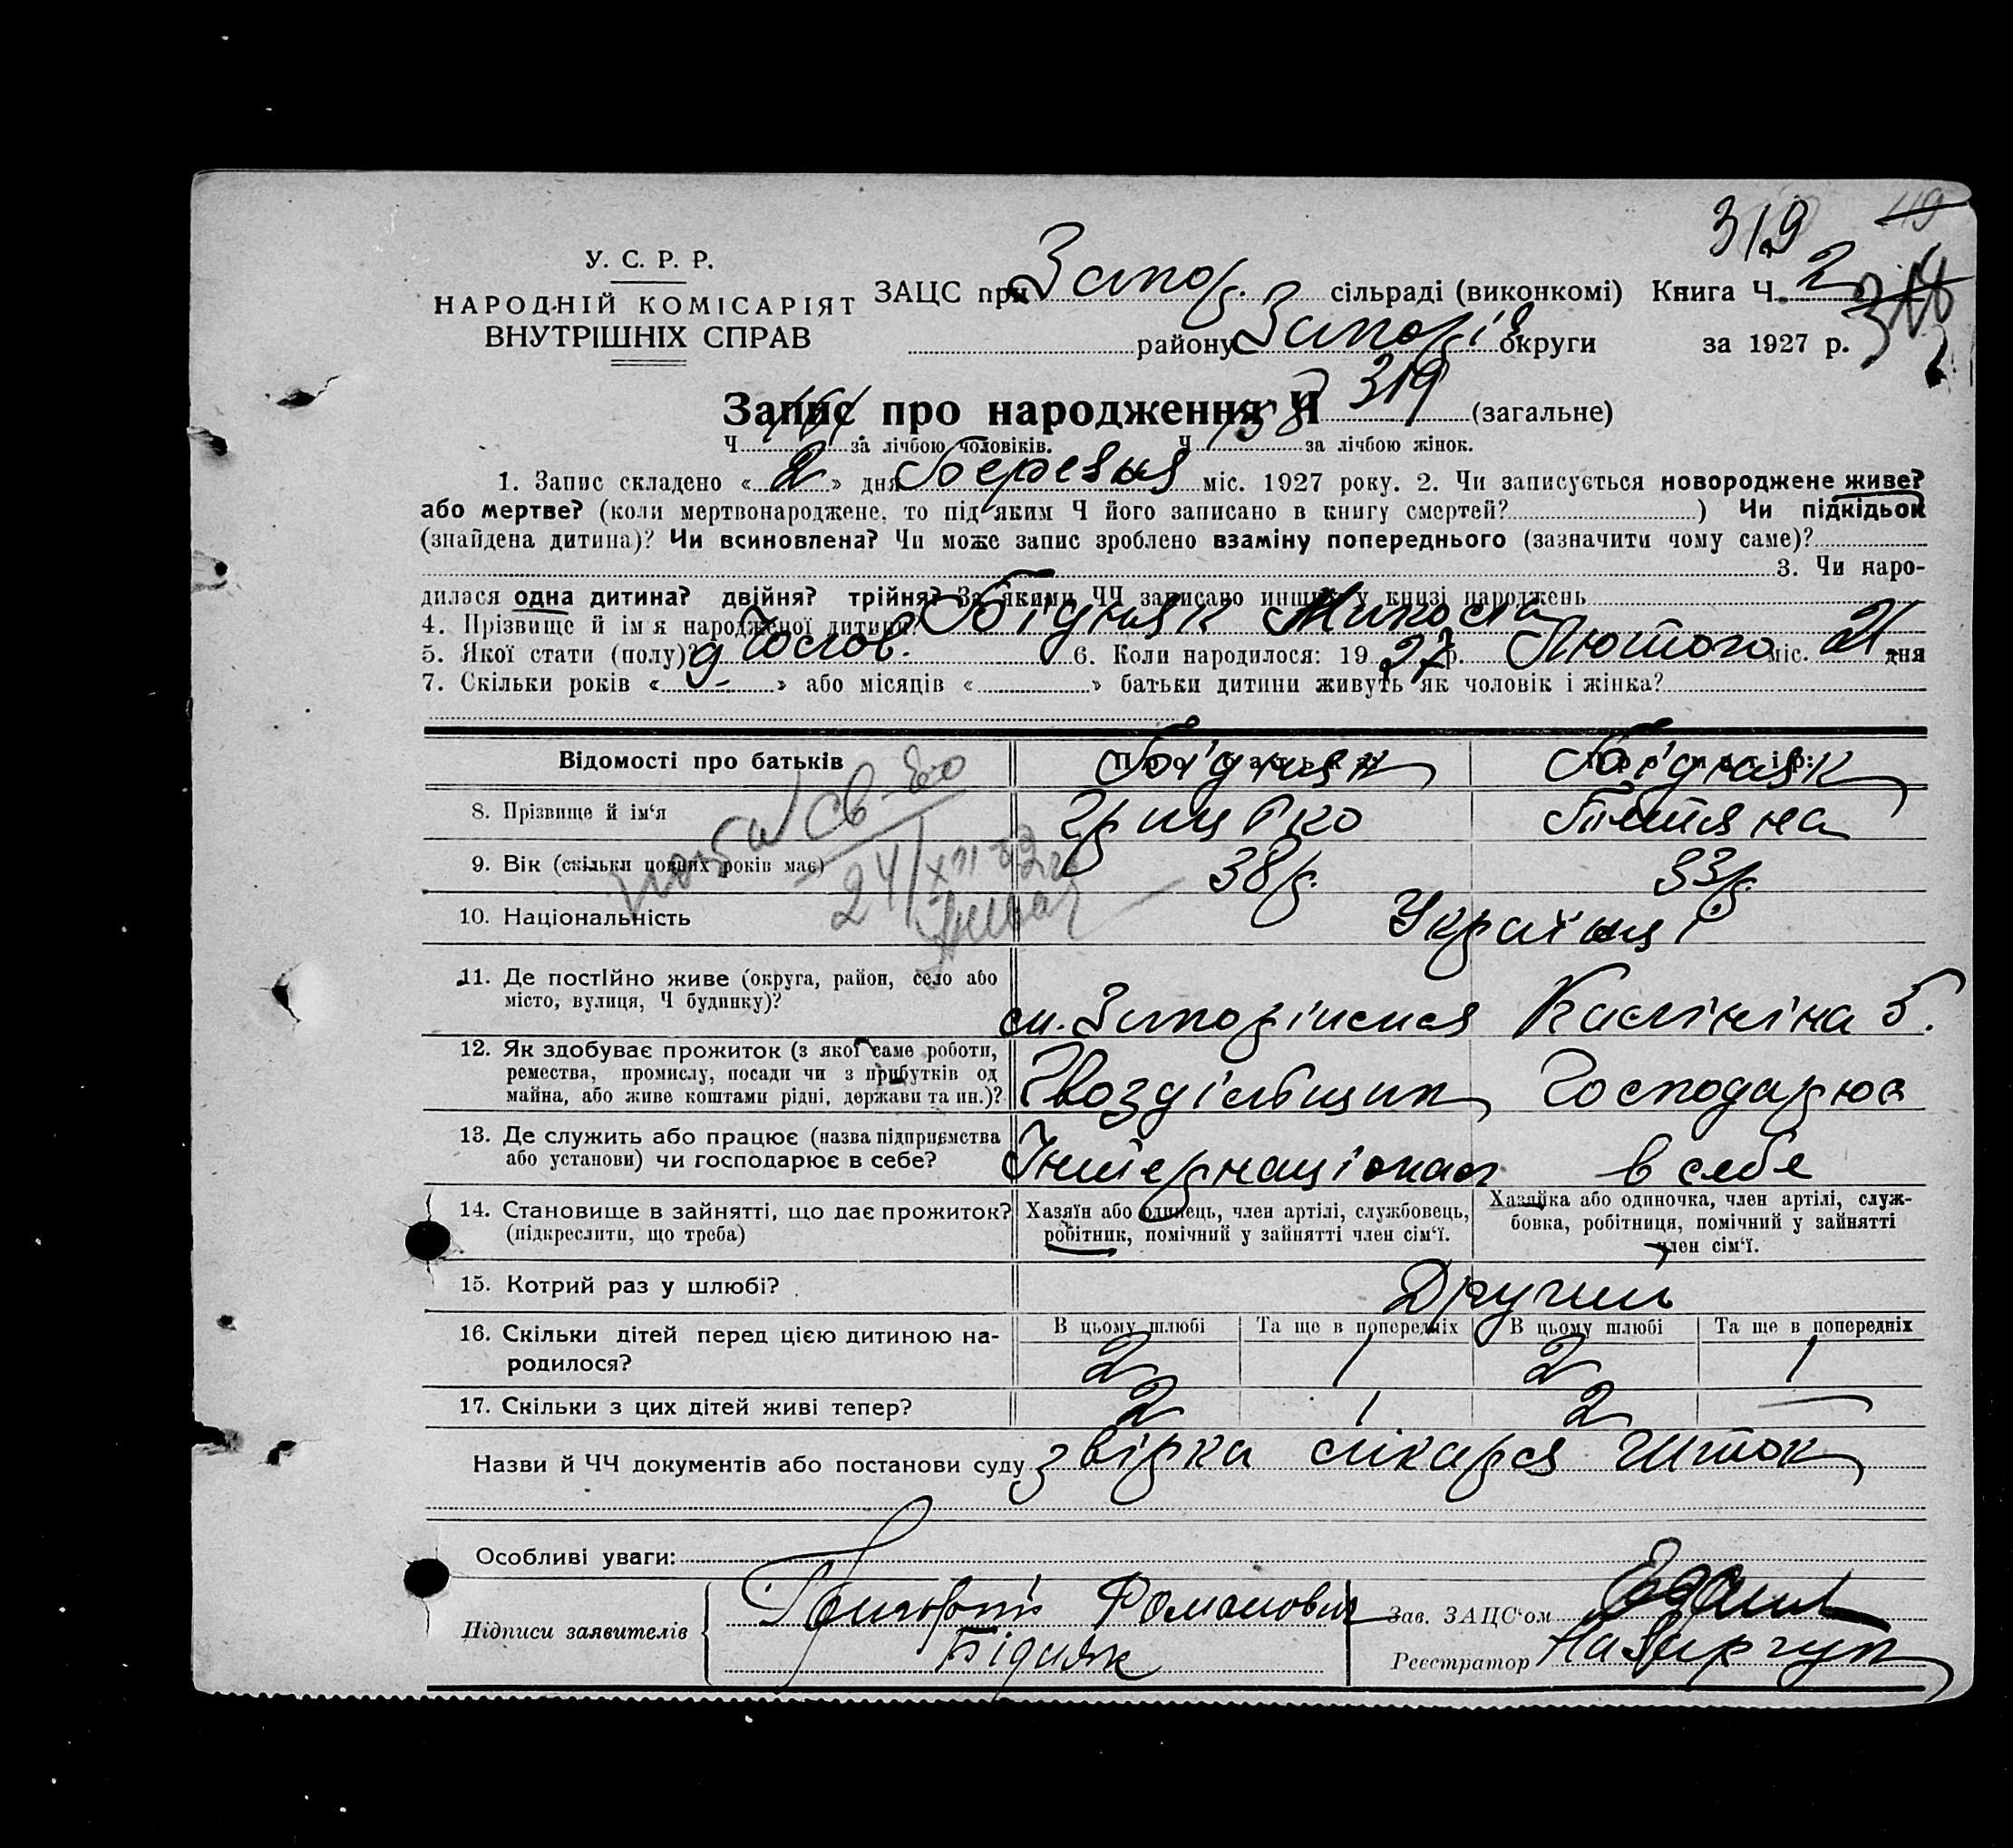 319 119
У. С. Р. Р.
НАРОДНІЙ КОМІСАРІЯТ
ВНУТРІШНІХ СПРАВ
ЗАЦС при Запор. сільраді (виконкомі) Книга Ч. 2
району Запоріз округи за 1927 р.
318
Запис про народження Ч 319 (загальне)
Ч 161 за лічбою чоловіків. Ч 158 за лічбою жінок.
1. Запис складено « 2 » дня Березня міс. 1927 року. 2. Чи записується новороджене живе?
або мертве? (коли мертвонароджене, то під яким Ч його записано в книгу смертей? ) Чи підкідьок
(знайдена дитина)? Чи всиновлена? Чи може запис зроблено взаміну попереднього (зазначити чому саме)?
3. Чи наро-
дилася одна дитина? двійня? трійня? За якими ЧЧ записано инших у книзі народжень
4. Прізвище й ім'я народженої дитини? Бідняк Микола
5. Якої стати (полу)? Чолов. 6. Коли народилося: 19 27 р. Лютого міс. 21 дня
7. Скільки років « » або місяців « » батьки дитини живуть як чоловік і жінка?
Відомості про батьків Про батька Про матір:
Бідняк Бідняк
8. Прізвище й ім'я Грицько Тетяна
9. Вік (скільки повних років має) 38р. 33р.
св-во
24/XII 32
10. Національність Українці
11. Де постійно живе (округа, район, село або
місто, вулиця, Ч будинку)? м. Запоріжжя Калініна 5.
12. Як здобуває прожиток (з якої саме роботи,
ремества, промислу, посади чи з прибутків од
майна, або живе коштами рідні, держави та ин.)? Гвоздільщик Господарює
13. Де служить або працює (назва підприємства
або установи) чи господарює в себе? Інтернаціонал в себе
14. Становище в зайнятті, що дає прожиток?
(підкреслити, що треба)
Хазяїн або одинець, член артілі, службовець,
робітник, помічний у зайнятті член сім'ї.
Хазяйка або одиночка, член артілі, служ-
бовка, робітниця, помічний у зайнятті
член сім'ї.
15. Котрий раз у шлюбі? Другий
16. Скільки дітей перед цією дитиною на-
родилося?
В цьому шлюбі Та ще в попередніх В цьому шлюбі Та ще в попередніх
2 1 2 1
17. Скільки з цих дітей живі тепер? 2 1 2 —
Назви й ЧЧ документів або постанови суду звірка лікаря Шток
Особливі уваги:
Підписи заявителів Григорій Романович
Бідняк
Зав. ЗАЦС'ом
Реєстратор Назарчук